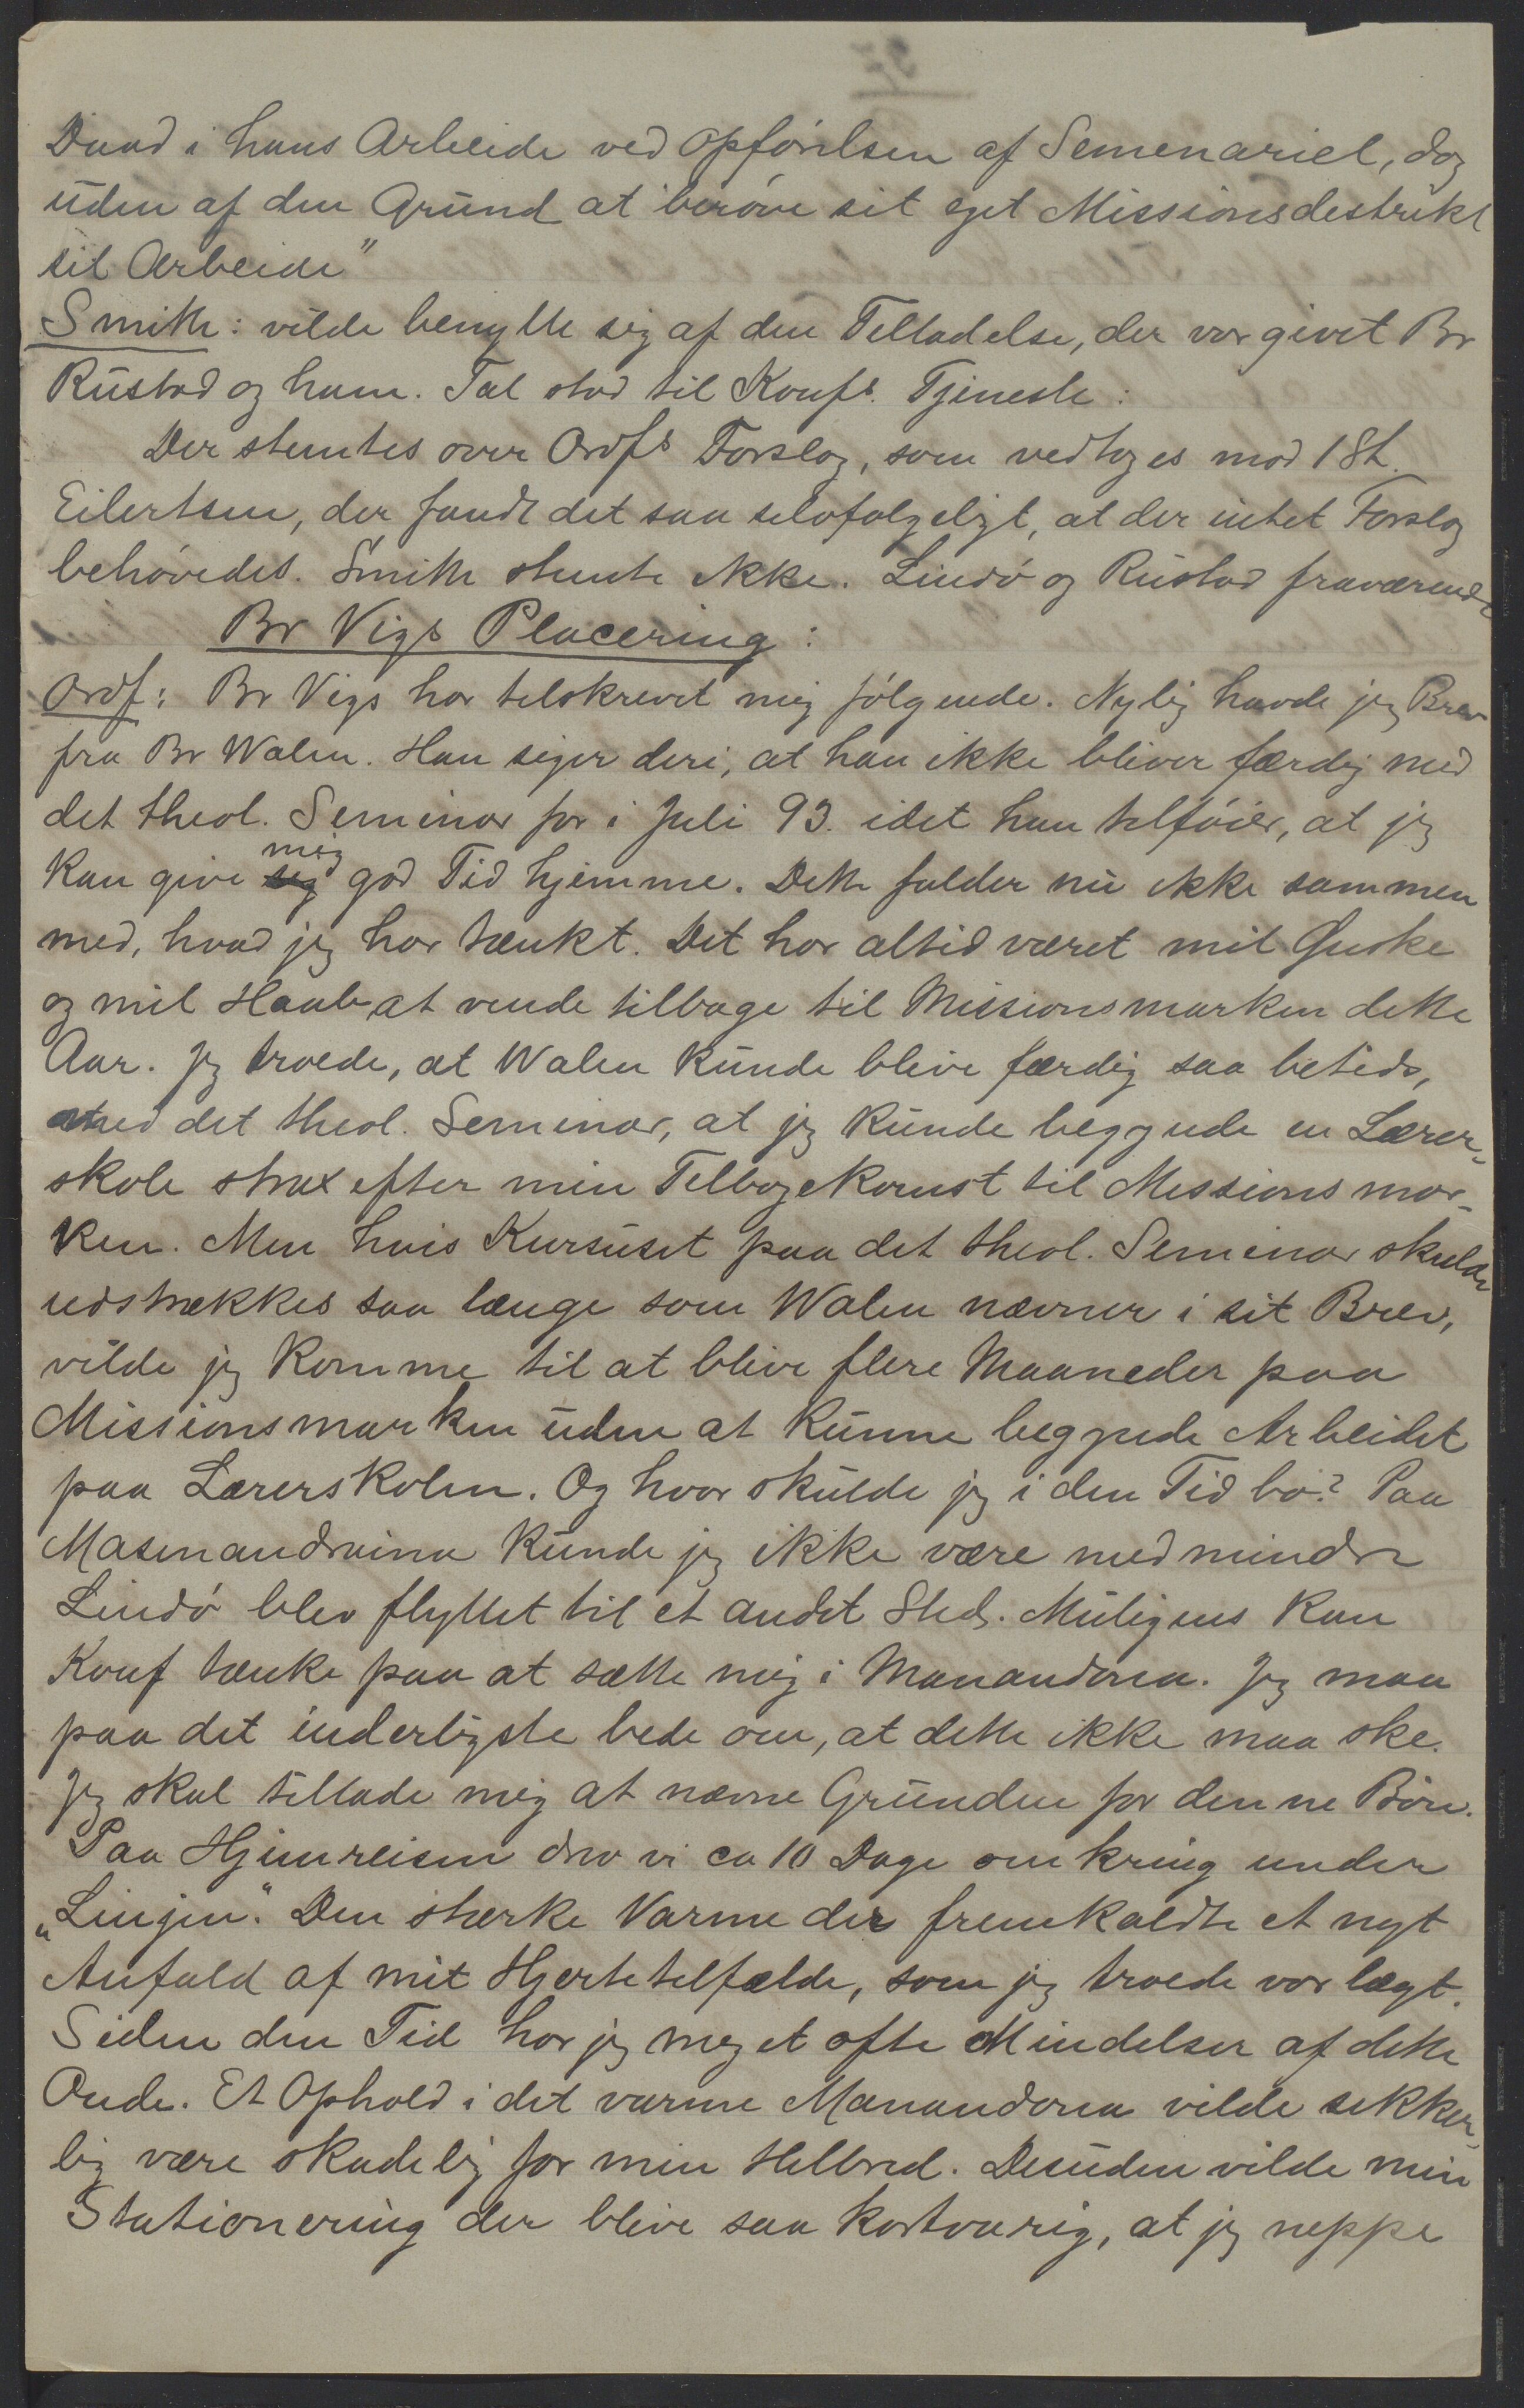 Daad i hans Arbeide ved Opførelsen af Semenariet, dog
uden af den Grund at berøve sit eget Missionsdestrikt
sit Arbeide"
Smith: vilde benytte sig af den Telladelse, der var givet Br
Rustad og ham. Tal stod til Konfs. Tjeneste:
Der stemtes over Ordfs Forslag, som vedtoges mod 1 St.
Eilertsen, der fandt det saa selvfølgeligt, at der intet Forslag
behøvedes. Smith stemte ikke. Lindø og Rustad fraværende
Br Vigs Placering:
Ordf: Br Vigs har telskrevet mig følgende. Nylig havde jeg Brev
fra Br Walen. Han siger deri, at han ikke bliver færdig med
det theol. Seminar før i Juli 93. idet han telføier, at jeg
kan give mig god Tid hjemme. Dette falder nu ikke sammen
med, hvad jeg har tænkt. Det har altid været mit Ønske
og mit Haab at vende tilbage til Missionsmarken dette
Aar. Jeg troede, at Walen kunde blive færdig saa betids,
med det theol. Seminar, at jeg kunde begynde en Lærer-
skole strax efter min Telbagekomst til Missionsmar-
ken. Men hvis Kursuset paa det theol. Seminar skulde
udstrækkes saa længe som Walen nævner i sit Brev,
vilde jeg komme til at blive flere Maaneder paa
Missionsmarken uden at kunne begynde Arbeidet
paa Lærerskolen. Og hvor skulde jeg i den Tid bo? Paa
Masinandraina kunde jeg ikke være medmindre
Lindø blev flyttet til et andet Sted. Muligens kan
Konf tænke paa at sætte mig i Manandona. Jeg maa
paa det inderligste bede om, at dette ikke maa ske.
Jeg skal tillade mig at nævne Grunden for denne Bøn.
Paa Hjemreisen drev vi ca 10 Dage omkring under
„Linjen". Den stærke Varme der fremkaldte et nyt
Anfald af mit Hjertetelfælde, som jeg troede var lægt.
Siden den Tid har jeg meget ofte Mindelser af dette
Onde. Et Ophold i det varme Manandona vilde sikker-
lig være skadelig for min Helbred. Desuden vilde min
Stationering der blive saa kortvarig, at jeg neppe